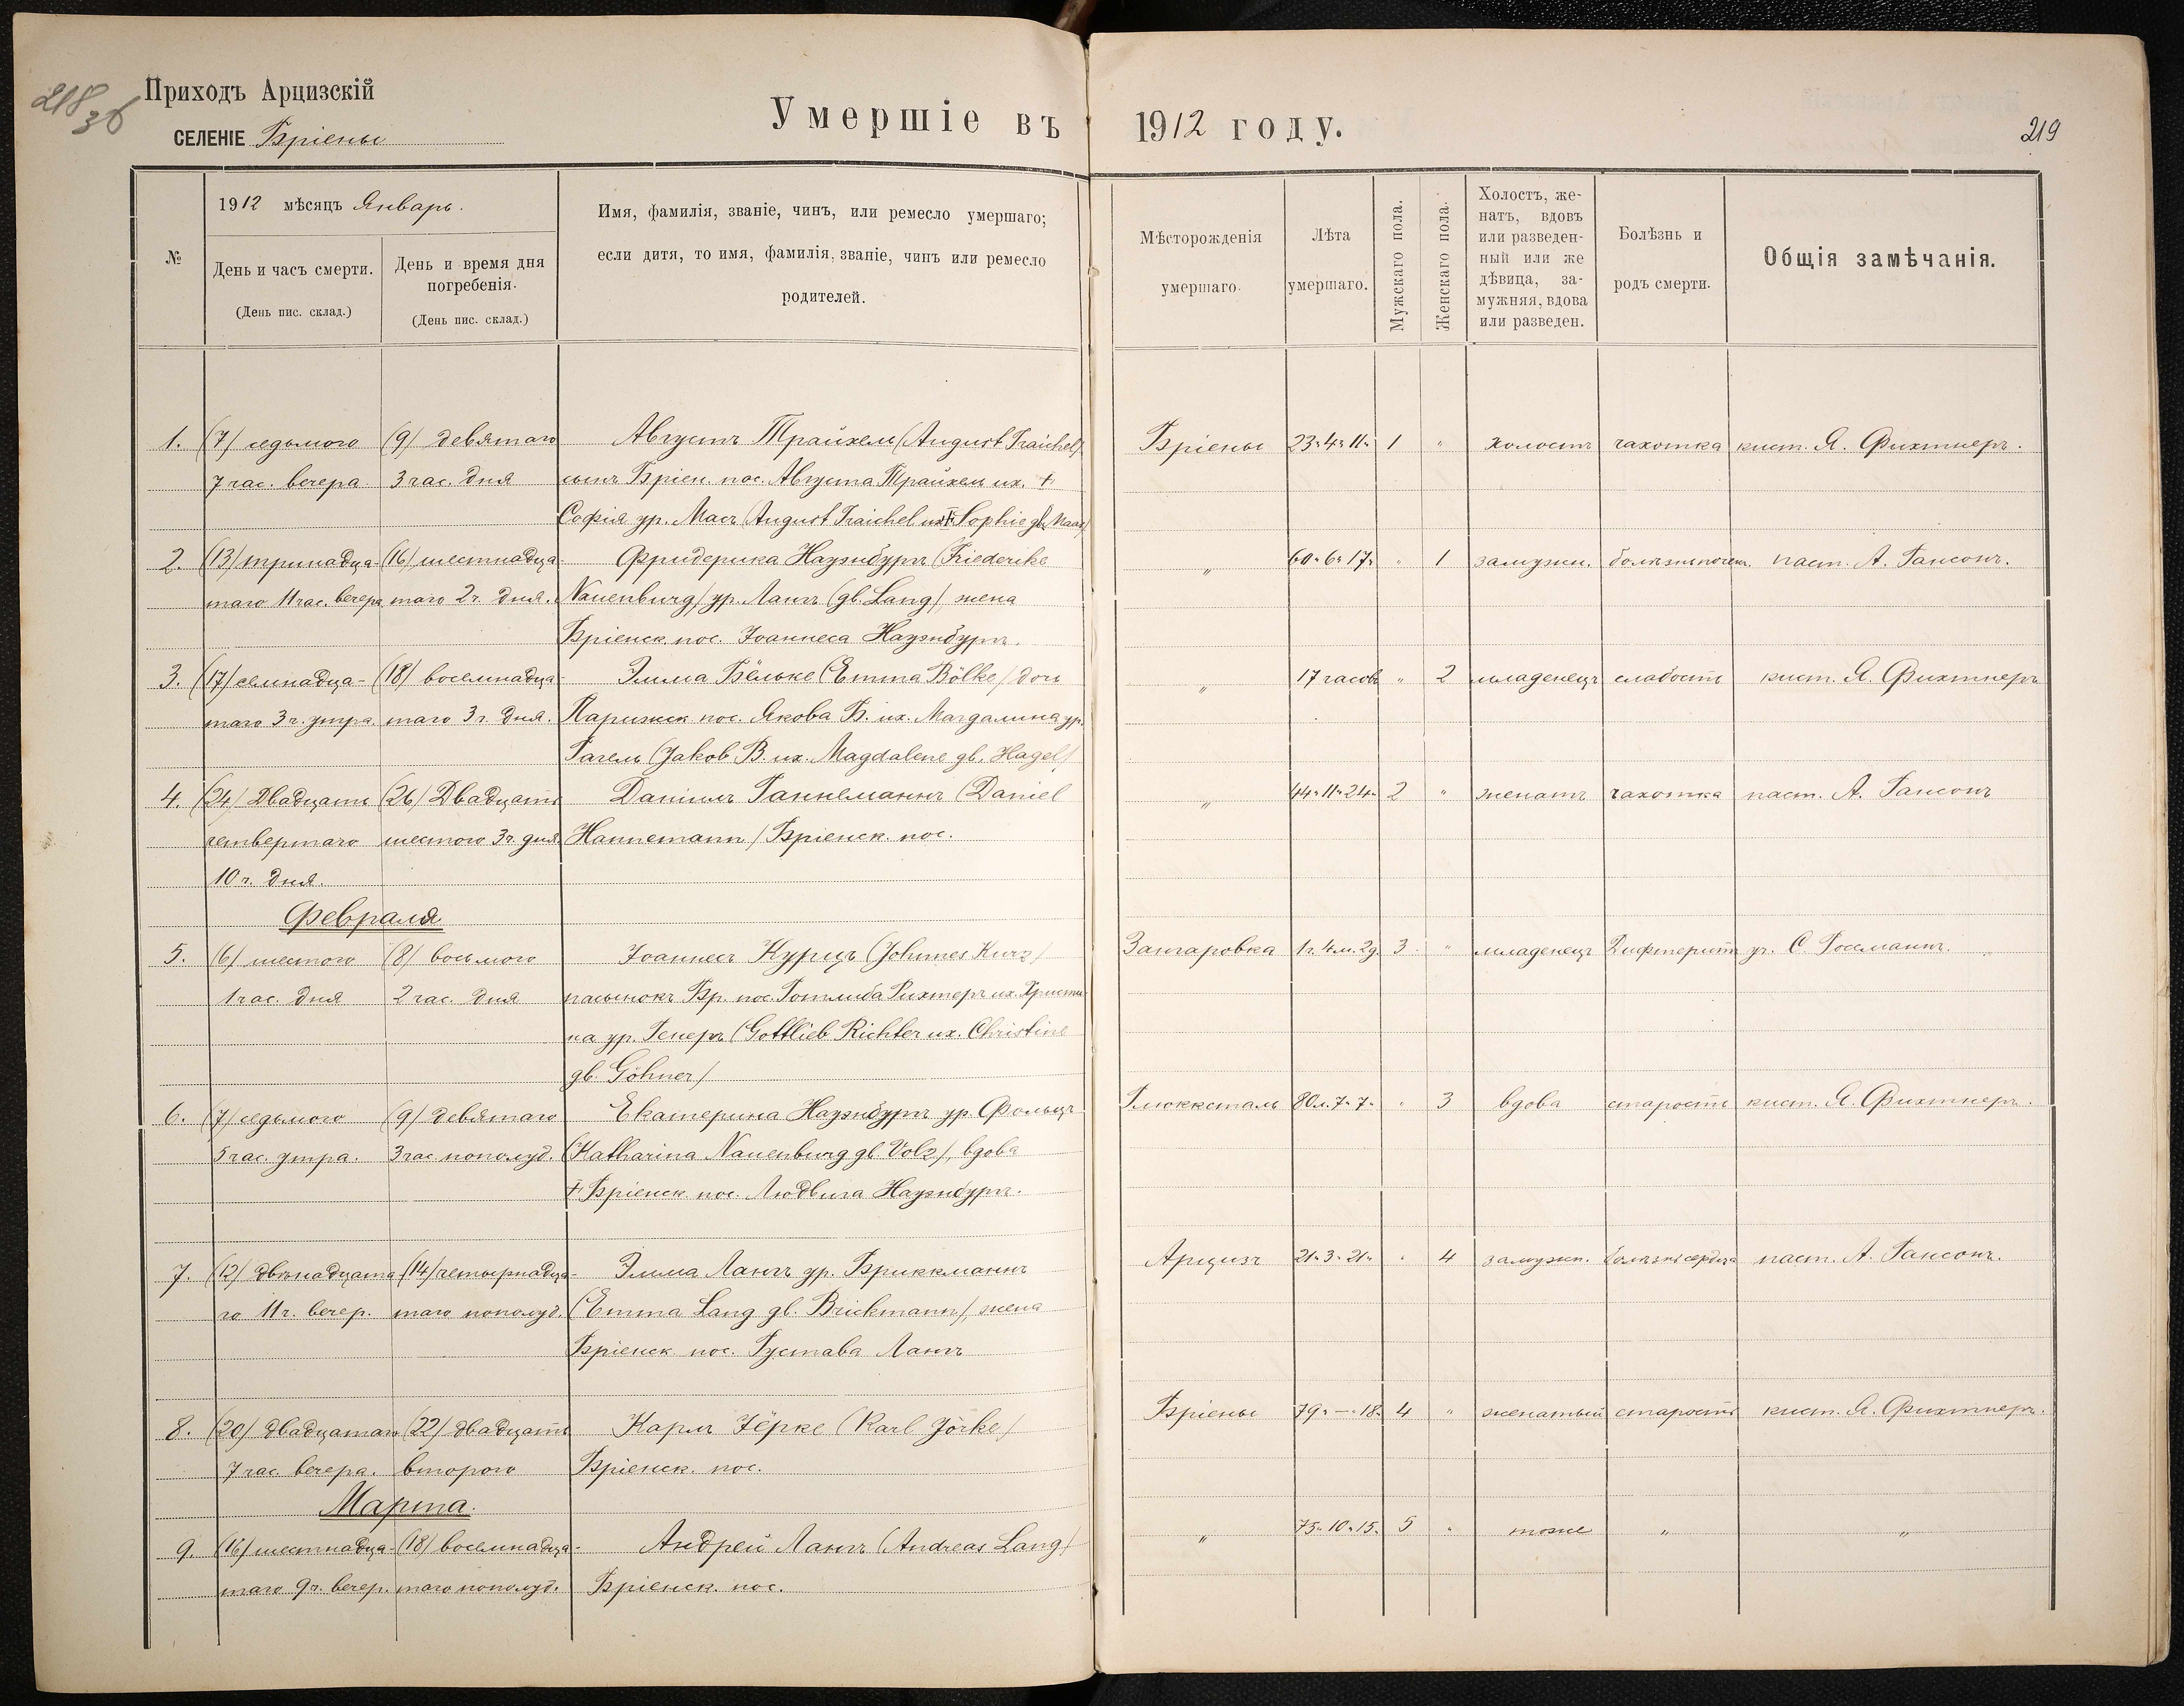 218
36
Приходъ Арцизскій
СЕЛЕНІЕ Бріены
Умершіе въ 1912 году.
219
№
1912 мѣсяцъ Январь.
День и часъ смерти.
(День пис. склад.)
День и время дня погребенія.
(День пис. склад.)
Имя, фамилія, званіе, чинъ, или ремесло умершаго;
если дитя, то имя, фамилія, званіе, чинъ или ремесло
родителей.
Мѣсторожденія
умершаго.
Лѣта
умершаго.
Мужскаго пола.
Женскаго пола.
Холостъ, же-
натъ, вдовъ
или разведен-
ный или же
дѣвица, за-
мужняя, вдова
или разведен.
Болѣзнь и
родъ смерти.
Общія замѣчанія.
1. (7) седьмого (9) девятаго Августъ Трайхель (August Traichel) Бріены 23 " 4 " 11 " 1 " холостъ чахотка кист. Я. Фихтнеръ.
7 час. вечера 3 час. дня сынъ Бріен. пос. Августа Трайхель их. +
Софія ур. Масъ (August Traichel их + Sophie gb. Maas)
2. (13) тринадца- (16) шестнадца- Фридерика Науэнбургъ (Friederike " 60 " 6 " 17 " " 1 замужн. болѣзнь почек. паст. А. Гансонъ.
таго 11 час. вечера таго 2 ч. дня. Nauenburg) ур. Лангъ (gb. Lang), жена
Бріенск. пос. Іоаннеса Науэнбургъ.
3. (17) семнадца- (18) восемнадца- Эмма Бёльке (Emma Bölke) дочь " 17 часовъ " 2 младенецъ слабость кист. Я. Фихтнеръ
таго 3 ч. утра. таго 3 ч. дня. Парижск пос. Якова Б. их. Магдалина ур.
Гагель (Jakob B. их. Magdalene gb. Hagel)
4. (24) Двадцать (26) Двадцать Даніилъ Ганнеманнъ (Daniel " 44 " 11 " 24 " 2 " женатъ чахотка паст. А. Гансонъ
четвертаго шестого 3 ч. дня Hannemann) Бріенск. пос.
10 ч. дня.
Февраля
5. (6) шестого (8) восьмого Іоаннесъ Курцъ (Johannes Kurz) Зангаровка 1 г. 4 м. 2 д. 3 " младенецъ Дифтеритъ уч. С. Госсманнъ.
1 час. дня 2 час. дня пасынокъ Бр. пос. Готлиба Рихтеръ их. Христи-
на ур. Генеръ (Gottlieb Richter их. Christine
gb. Göhner)
6. (7) седьмого (9) девятаго Екатерина Науэнбургъ ур. Фольцъ Глюкксталь 80 л. 7 " 7 " " 3 вдова старость кист. Я. Фихтнеръ.
5 час. утра. 3 час. пополуд. (Katharina Nauenburg gb. Volz), вдова
+ Бріенск. пос. Людвига Науэнбургъ.
7. (12) двѣнадцата- (14) четырнадца- Эмма Лангъ ур. Бриккманнъ Арцизъ 21 " 3 " 21 " " 4 замужн. болѣзнь сердца паст. А. Гансонъ.
го 11 ч. вечер. таго пополуд. (Emma Lang gb. Brickmann), жена
Бріенск. пос. Густава Лангъ
8. (20) двадцатаго (22) двадцать Карлъ Іёрке (Karl Jörke) Бріены 79 " — " 18 " 4 " женатый старость кист. Я. Фихтнеръ.
7 час. вечера. второго Бріенск. пос.
Марта.
9. (16) шестнадца- (18) восемнадца- Андрей Лангъ (Andreas Lang) " 75 " 10 " 15 " 5 " тоже " "
таго 9 ч. вечер. таго пополуд. Бріенск. пос.